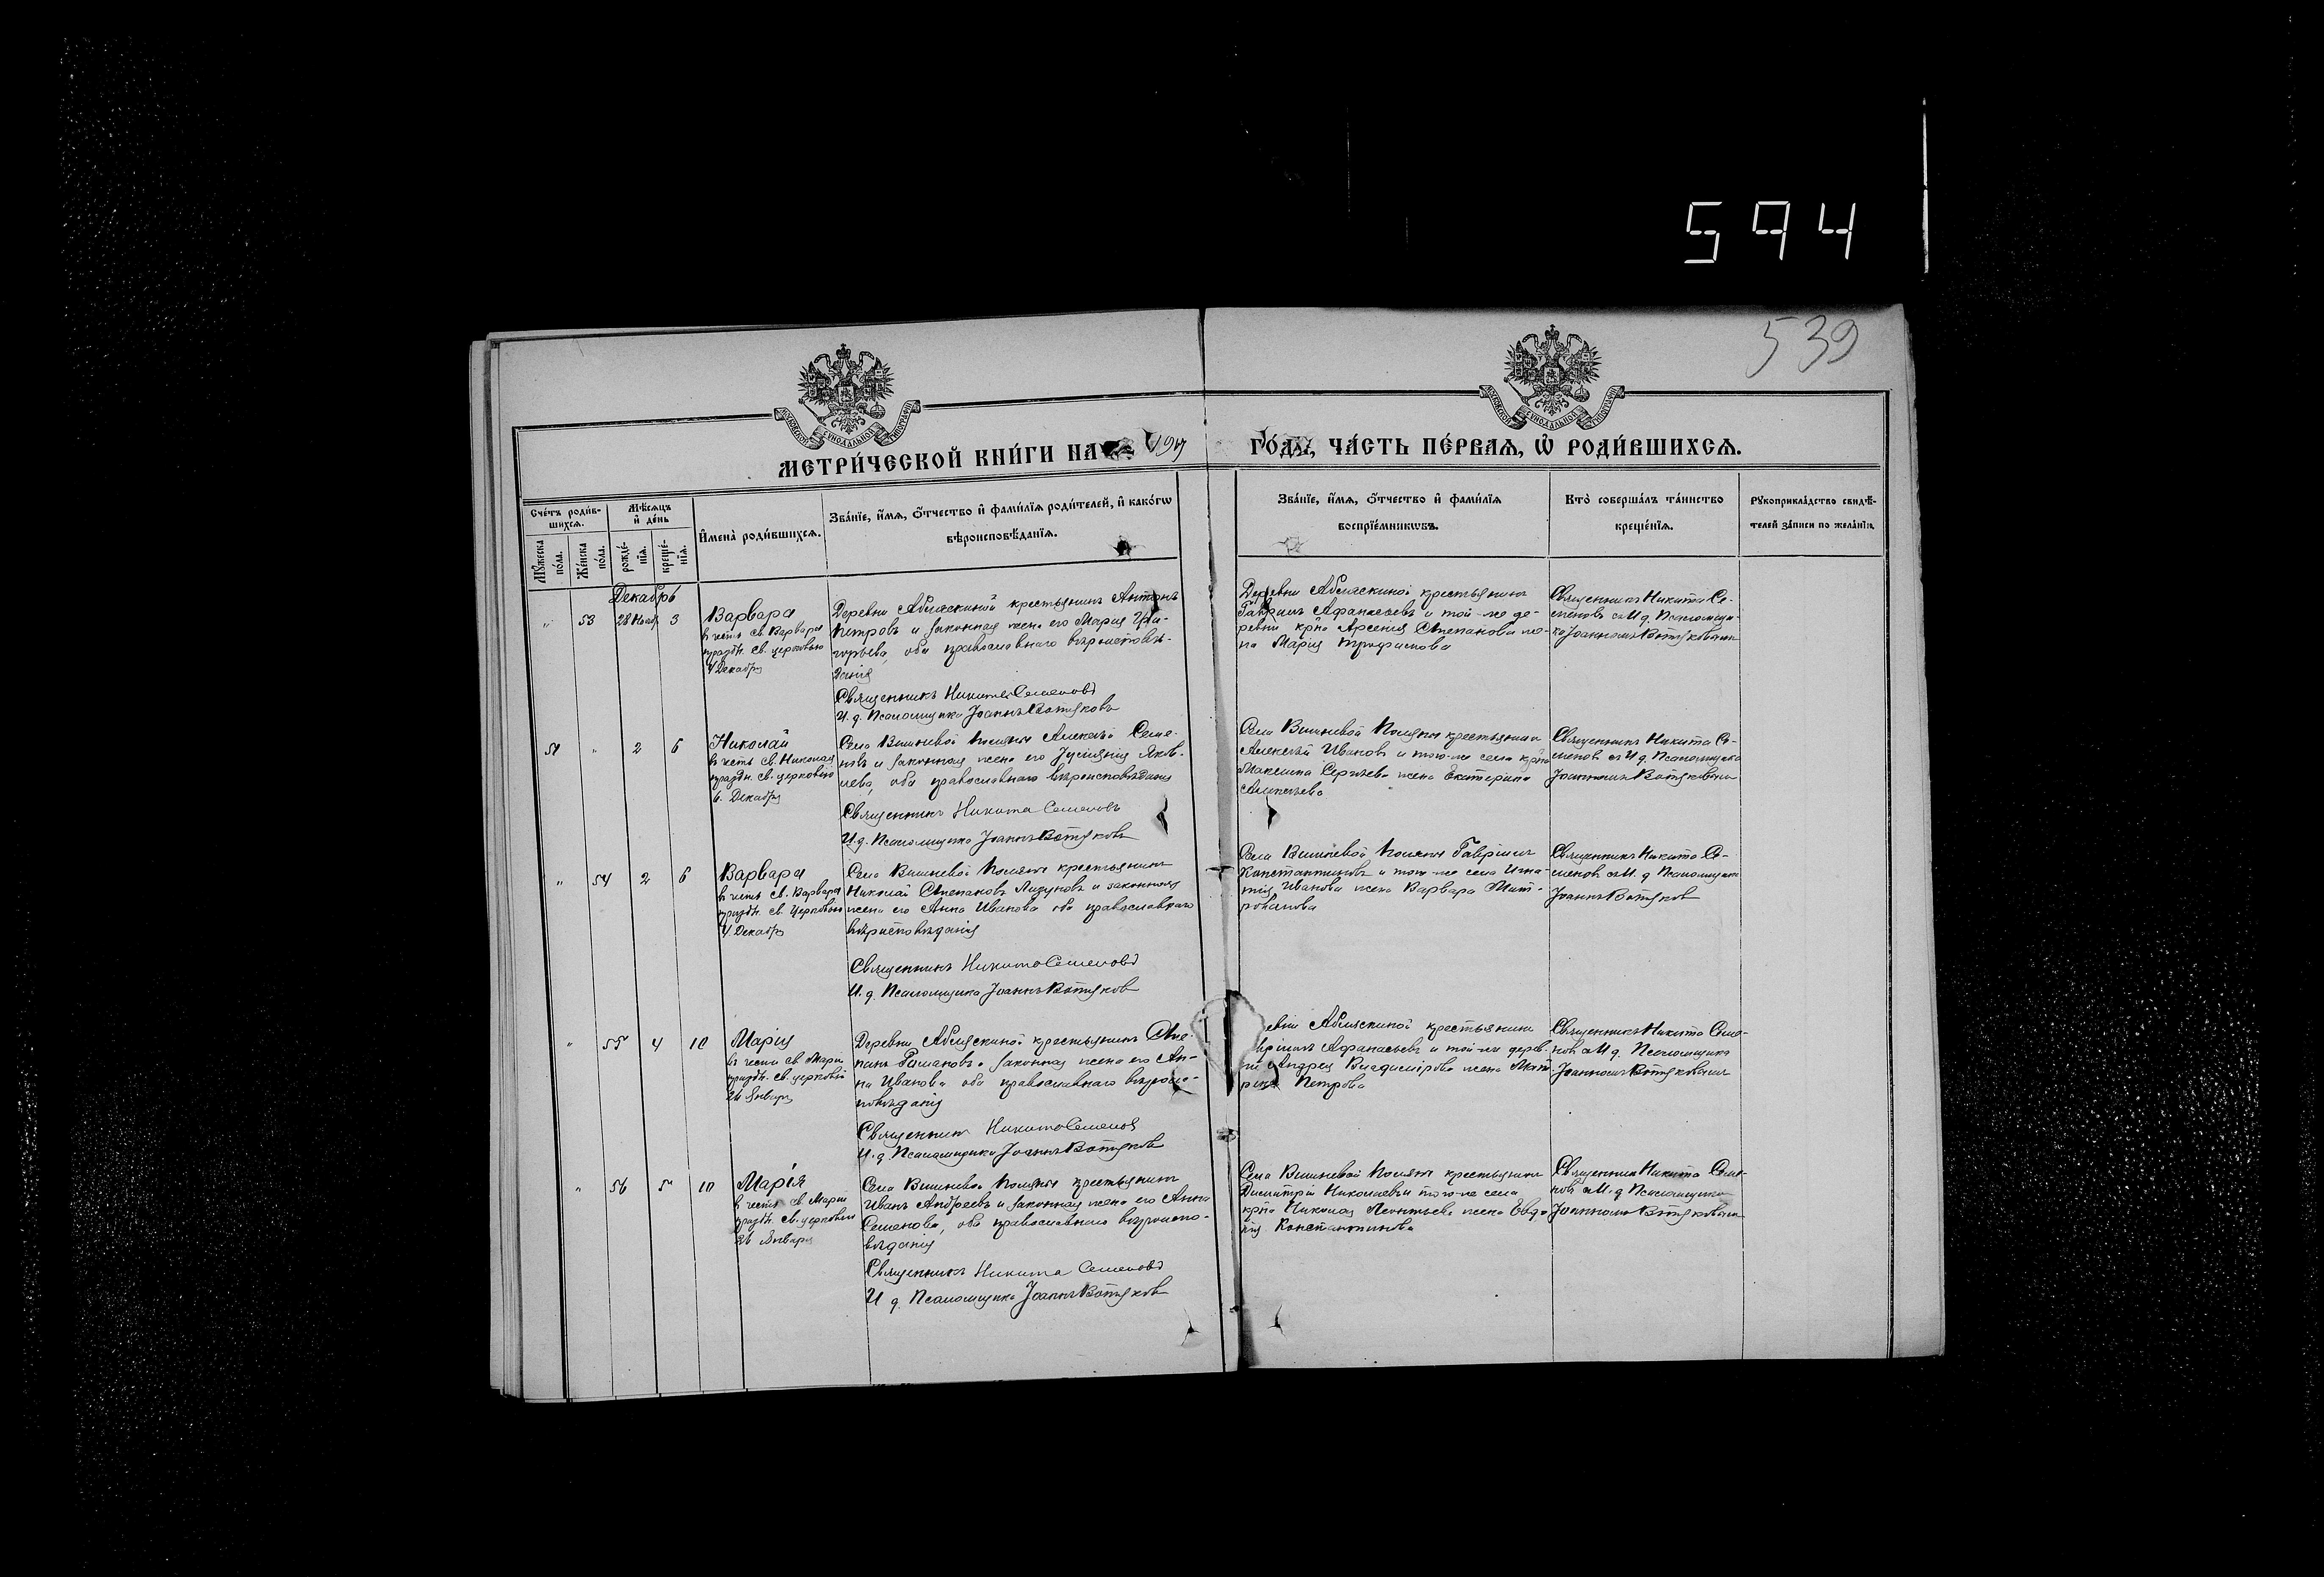 594
539
МОСКОВСКОЙ СѴНОДАЛЬНОЙ ТИПОГРАФІИ
МОСКОВСКОЙ СѴНОДАЛЬНОЙ ТИПОГРАФІИ
МЕТРИ́ЧЕСКОЙ КНИ́ГИ НА
ГО́ДЪ, ЧА́СТЬ ПЕ́РВАЯ, Ѡ҆ РОДИ́ВШИХСЯ.
Сче́тъ роди́в-
шихся.
Мѣ́сяцъ
и҆ де́нь
Му́жеска
по́ла.
Же́нска
по́ла.
рожде́-
нїя.
креще́-
нїя.
И҆мена̀ роди́вшихся.
Зва́нїе, и҆́мя, ѻ҆́тчество и҆ фами́лїя роди́телей, и҆ како́гѡ
вѣроисповѣ́данїя.
Зва́нїе, и҆́мя, ѻ҆́тчество и҆ фами́лїя
воспрїе́мникѡвъ.
Кто̀ соверша́лъ та́инство
креще́нїя.
Рукоприкла́дство свидѣ́-
телей за́писи по жела́нїю.
Декабрь
" 53 28 Нояб. 3
Варвара
въ честь св. Варвары
праздн. св. церковью
4 Декабря
Деревни Абляскиной крестьянинъ Антонъ
Петровъ и законная жена его Марія Гри-
горьева, оба православнаго вѣроисповѣ-
данія
Священникъ Никита Семеновъ
И. д. Псаломщика Іоаннъ Вотяковъ
Деревни Абляскиной крестьянинъ
Гавріилъ Афанасьевъ и той-же де-
ревни кр-на Арсенія Степанова же-
на Марія Трофимова
Священникъ Никита Се-
меновъ съ И. д. Псаломщи-
ка Іоанномъ Вотяковымъ
51 " 2 6
Николай
въ честь св. Николая
праздн. св. церковью
6. Декабря
Села Вишневой Поляны Алексѣй Семе-
новъ и законная жена его Іуліянія Яков-
лева, оба православнаго вѣроисповѣданія
Священникъ Никита Семеновъ
И. д. Псаломщика Іоаннъ Вотяковъ
Села Вишневой Поляны крестьянинъ
Алексѣй Ивановъ и того-же села кр-на
Максима Сергѣева жена Екатерина
Алексѣева
Священникъ Никита Се-
меновъ съ И. д. Псаломщика
Іоанномъ Вотяковымъ
" 54 2 6
Варвара
въ честь св. Варвары
праздн. св. Церковью
4. Декабря
Села Вишневой Поляны крестьянинъ
Николай Степановъ и законная
жена его Анна Иванова оба православнаго
вѣроисповѣданія
Священникъ Никита Семеновъ
И. д. Псаломщика Іоаннъ Вотяков
Села Вишневой Поляны Гавріилъ
Константиновъ и того-же села Игна-
тія Иванова жена Варвара Мит-
рофанова
Священникъ Никита Се-
меновъ съ И. д Псаломщика
Іоаннъ Вотяков
" 55 4 10
Марія
въ честь св. Маріи
праздн. св. церковью
26 Января
Деревни Абляскиной крестьянинъ Сте-
панъ Романовъ и законная жена его Ан-
на Иванова оба православнаго вѣроис-
повѣданія
Священникъ Никита Семенов
И. д. Псаломщика Іоаннъ Вотяковъ
евни Абляскиной крестьянинъ
вріилъ Афанасьевъ и той-же дерев-
ни Андрея Владимірова жена Мат-
рена Петрова
Священникъ Никита Семе-
новъ съ И д. Псаломщика
Іоанномъ Вотяковымъ
" 56 5 10
Марія
въ честь св. Маріи
праздн. св. церковью
26 Января
Села Вишневой Поляны крестьянинъ
Иванъ Андреевъ и законная жена его Анна
Семенова, оба православнаго вѣроиспо-
вѣданія
Священникъ Никита Семеновъ
И д. Псаломщика Іоаннъ Вотяков
Села Вишневой Поляны крестьянинъ
Димитрій Николаевъ и того-же села
кр-на Николая Леонтьева жена Евдо
кія Константинова
Священникъ Никита Семе-
новъ съ И. д Псаломщика
Іоанномъ Вотяковымъ